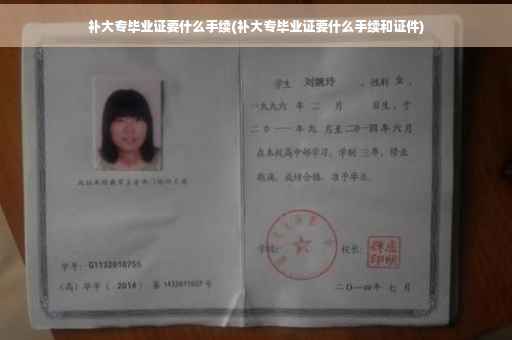 补大专毕业证要什么手续(补大专毕业证要什么手续和证件)
学生 刘婉玲 ，性别 女 ，
一九九六 年 二 月 日生，于
二〇一一 年 九 月至 二〇一四 年 六 月
在本校高中部学习，学制 三 年，修业
期满，成绩合格，准予毕业。
学校：
校长：
学号：G1132010755
(高) 毕字 ( 2014 ) 第 1432011027 号
二〇一四年 七 月